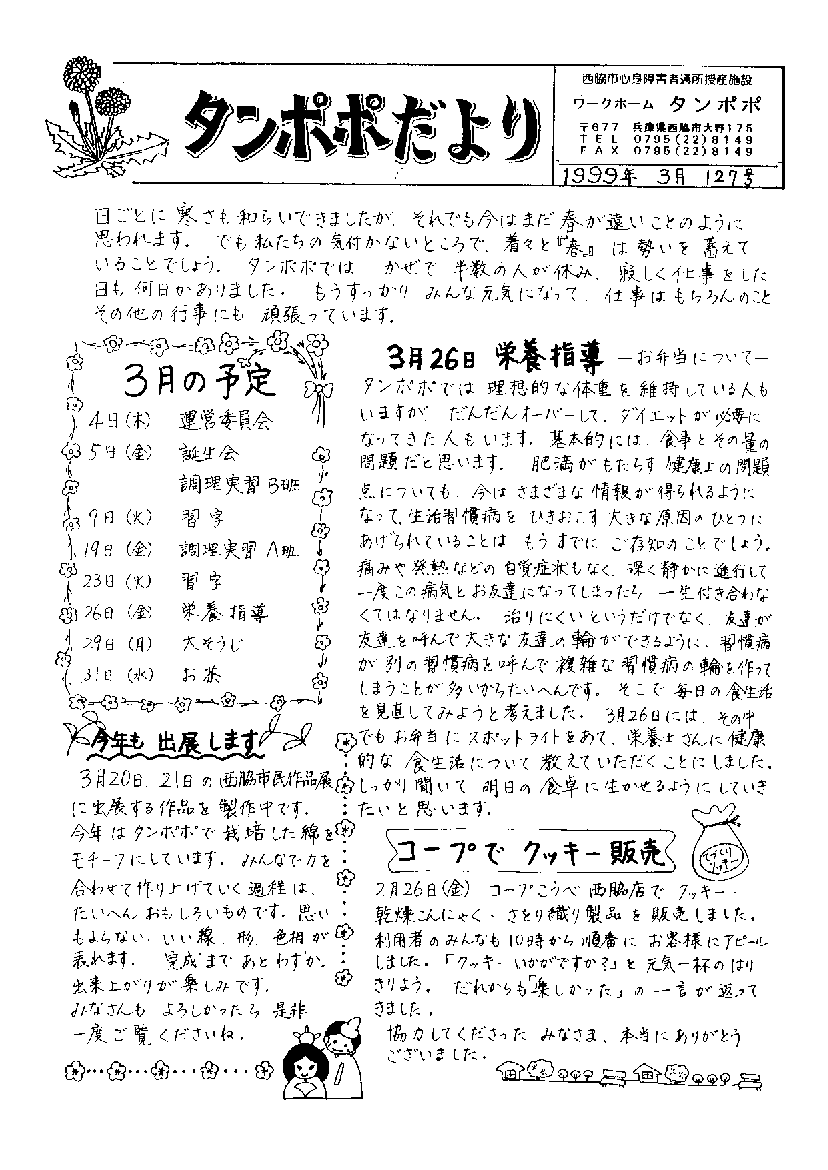 タンポポだより
西脇市心身障害者通所授産施設
ワークホーム タンポポ
〒677 兵庫県西脇市大野175
TEL 0795(22)8149
FAX 0795(22)8149
1999年 3月 127号
日ごとに寒さも和らいできましたが、それでも今はまだ春が遠いことのように
思われます。 でも私たちの気付かないところで、着々と『春』は勢いを蓄えて
いることでしょう。 タンポポでは かぜで 半数の人が休み、寂しく仕事をした
日も何日かありました。 もうすっかり みんな元気になって、仕事はもちろんのこと
その他の行事にも 頑張っています。
3月の予定
4日(木) 運営委員会
5日(金) 誕生会
調理実習B班
9日(火) 習字
19日(金) 調理実習A班
23日(火) 習字
26日(金) 栄養指導
29日(月) 大そうじ
31日(水) お茶
今年も出展します
3月20日、21日の西脇市民作品展
に出展する作品を製作中です。
今年はタンポポで栽培した綿を
モチーフにしています。みんなで力を
合わせて作り上げていく過程は、
たいへんおもしろいものです。思い
もよらない、いい線、形、色相が
表れます。 完成まであとわずか。
出来上がりが楽しみです。
みなさんも よろしかったら 是非
一度ご覧くださいね。
3月26日 栄養指導 ―お弁当について―
タンポポでは 理想的な体重を維持している人も
いますが、だんだんオーバーして、ダイエットが必要に
なってきた人もいます。基本的には、食事とその量の
問題だと思います。 肥満がもたらす健康上の問題
点についても、今はさまざまな情報が得られるように
なって、生活習慣病をひきおこす大きな原因のひとつに
あげられていることは もうすでに ご存知のことでしょう。
痛みや発熱などの自覚症状もなく、深く静かに進行して
一度この病気とお友達になってしまったら 一生付き合わな
くてはなりません。 治りにくいというだけでなく、友達が
友達を呼んで大きな友達の輪ができるように、習慣病
が別の習慣病を呼んで複雑な習慣病の輪を作って
しまうことが多いからたいへんです。そこで毎日の食生活
を見直してみようと考えました。 3月26日には、その中
でもお弁当にスポットライトをあて、栄養士さんに健康
的な食生活について教えていただくことにしました。
しっかり聞いて 明日の食卓に生かせるようにしていき
たいと思います。
コープで クッキー販売
てづくりクッキー
2月26日(金) コープこうべ西脇店で クッキー・
乾燥こんにゃく・さをり織り製品を販売しました。
利用者のみんなも10時から順番にお客様にアピール
しました。「クッキーいかがですか?」と元気一杯のはり
きりよう。 だれからも「楽しかった」の一言が返って
きました。
協力してくださった みなさま、本当にありがとう
ございました。